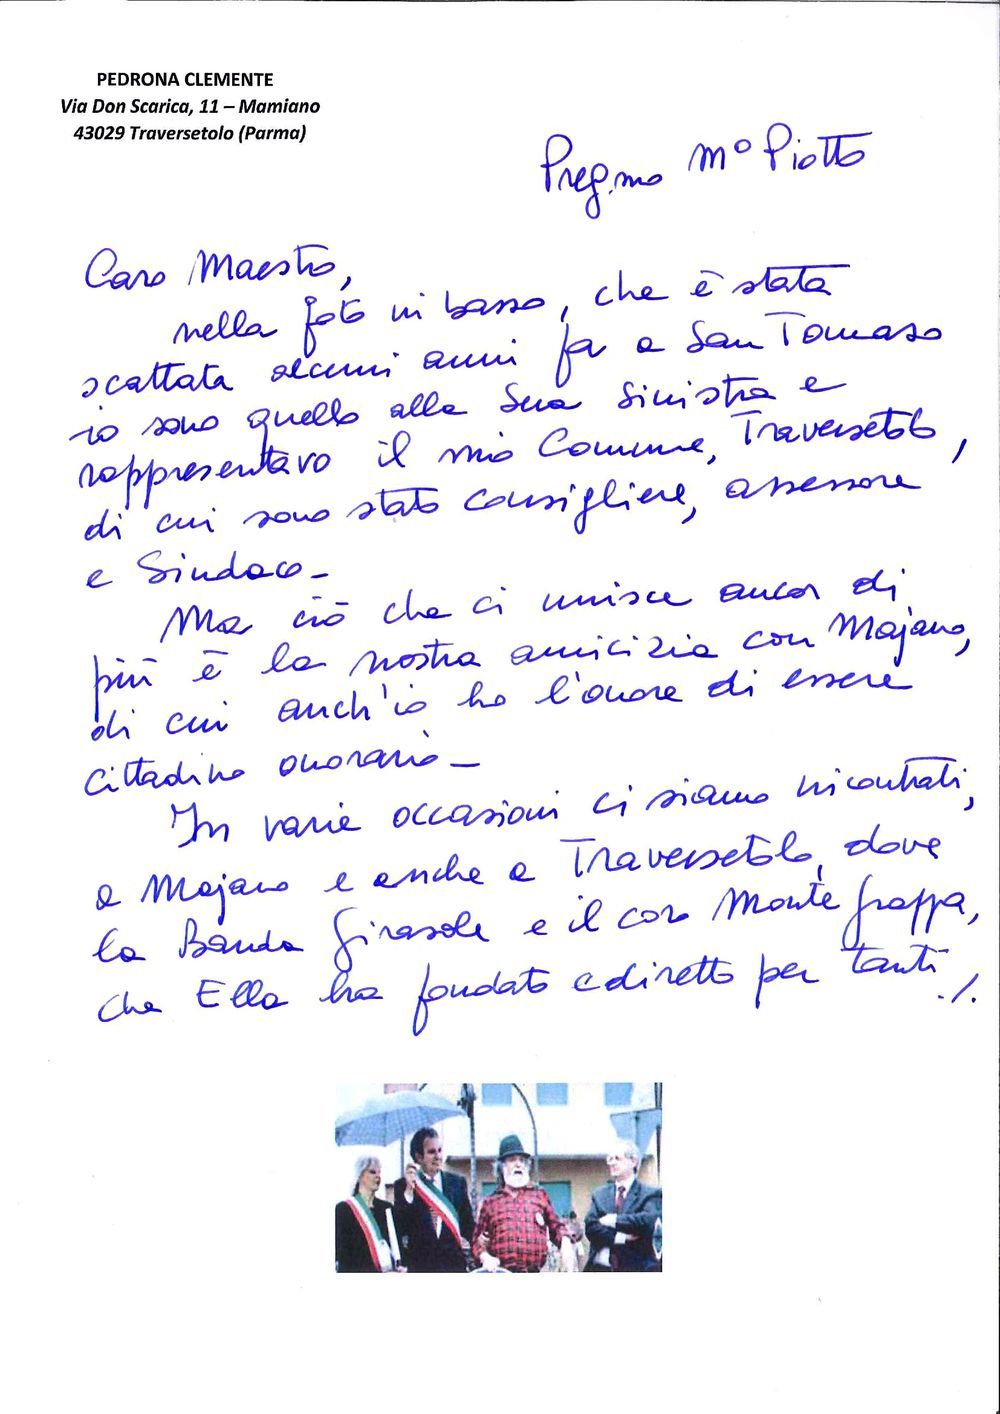 PEDRONA CLEMENTE
Via Don Scarica, 11 – Mamiano
43029 Traversetolo (Parma)
Preg.mo M° Piotto
Caro Maestro,
nella foto in basso, che è stata
scattata alcuni anni fa a San Tomaso
io sono quello alla Sua Sinistra e
rappresentavo il mio Comune, Traversetolo,
di cui sono stato consigliere, assessore
e Sindaco_
Ma ciò che ci unisce ancor di
più è la nostra amicizia con Majano,
di cui anch'io ho l'onore di essere
cittadino onorario_
In varie occasioni ci siamo incontrati,
a Majano e anche a Traversetolo, dove
la Banda Girasole e il coro Monte Grappa,
che Ella ha fondato e diretto per tanti
./.